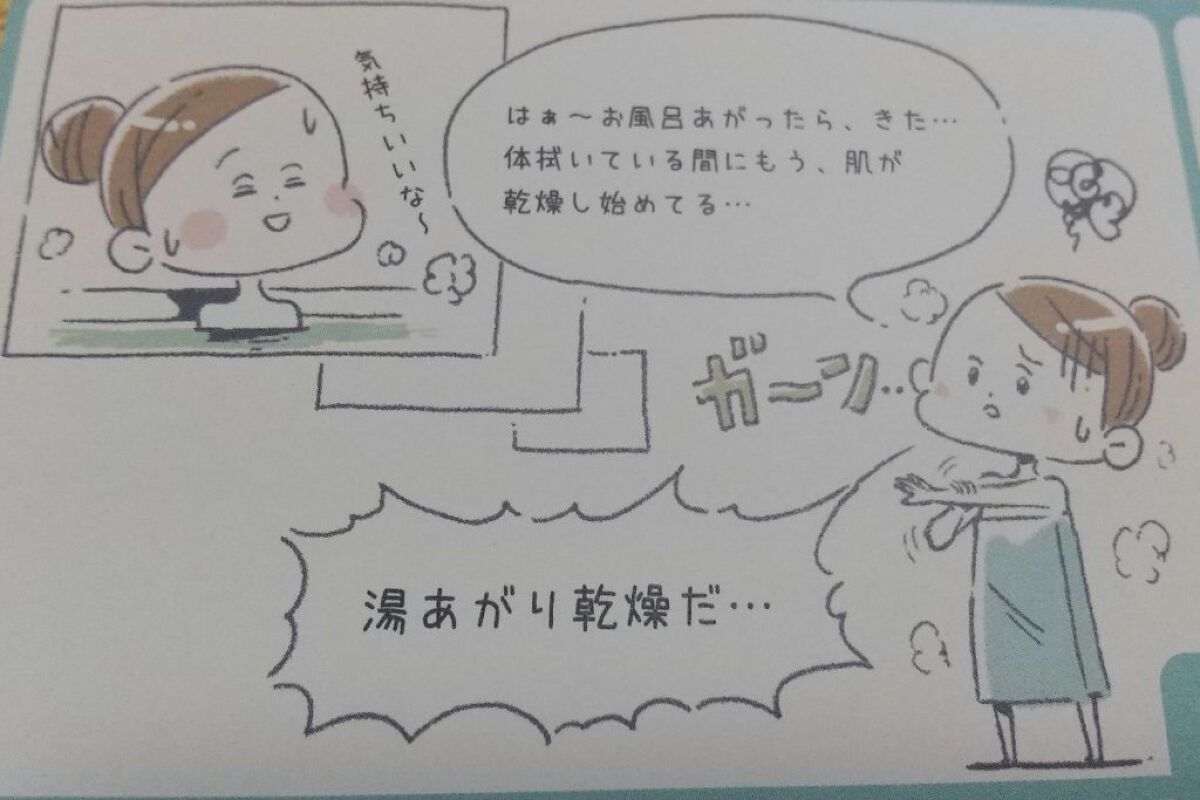 気持ちいいな〜
はぁ〜お風呂あがったら、きた…
体拭いている間にもう、肌が
乾燥し始めてる…
ガーン‥
湯あがり乾燥だ…